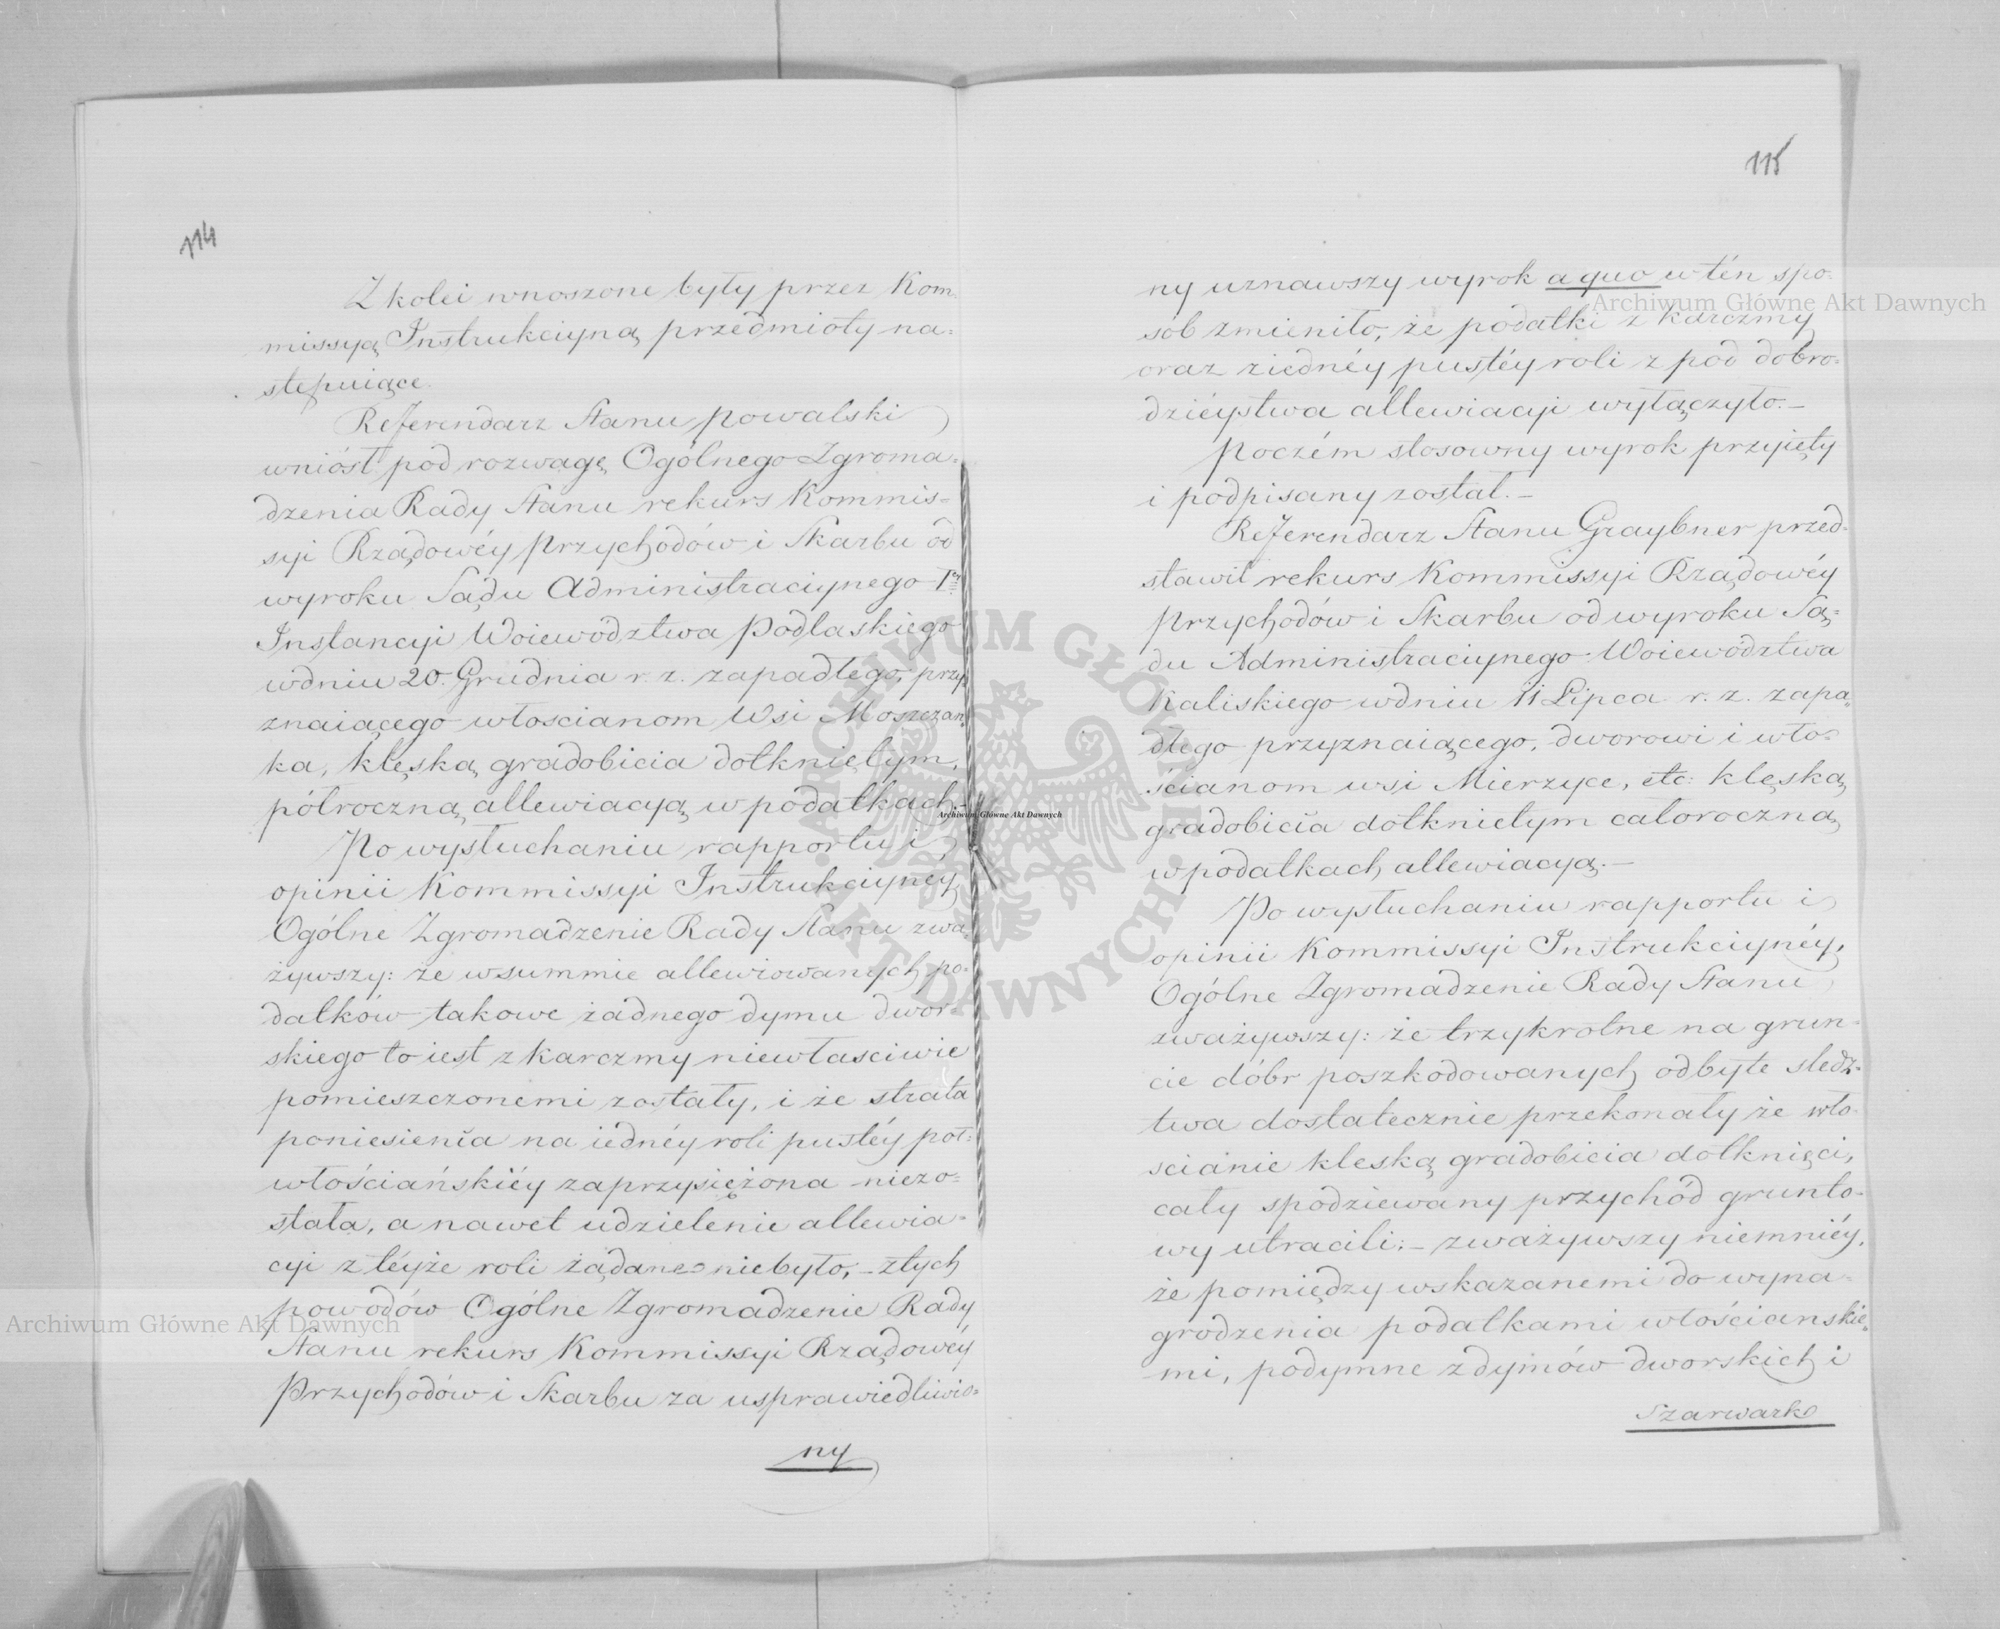 114
Z kolei wnoszone były przez Kom-
missyą Instrukcyiną przedmioty na-
stępuiące.
Referendarz Stanu Powalski
wniósł pod rozwagę Ogólnego Zgroma-
dzenia Rady Stanu rekurs Kommis-
syi Rządowéy Przychodów i Skarbu od
wyroku Sądu Administracyinego I
Instancyi Woiewództwa Podlaskiego
w dniu 20. Grudnia r. z. zapadłego, przy-
znaiącego włoscianom Wsi Moszczan-
ka, klęską gradobicia dotkniętym,
półroczną allewiacyą w podatkach.-
Po wysłuchaniu rapportu i
opinii Kommissyi Instrukcyinéy
Ogólne Zgromadzenie Rady Stanu zwa-
żywszy: że w summie allewiowanych po-
datków takowe żadnego dymu dwor-
skiego to iest z karczmy niewłasciwie
pomieszczonemi zostały, i że strata
poniesienia na iednéy roli pustéy pół-
włościańskiéy zaprzysiężona niezo-
stała, a nawet udzielenie allewia-
cyi z téyże roli żądane niebyło, - z tych
powodów Ogólne Zgromadzenie Rady
Stanu rekurs Kommissyi Rządowéy
Przychodów i Skarbu za usprawiedliwio-
ny
115
ny uznawszy wyrok a quo w tén spo-
sob zmieniło, że podatki z karczmy
oraz ziednéy pustéy roli z pod dobro-
dziéystwa allewiacyi wyłączyło.-
Poczém stosowny wyrok przyięty
i podpisany został.-
Referendarz Stanu Graybner przed-
stawił rekurs Kommissyi Rządowéy
Przychodów i Skarbu od wyroku Są-
du Administracyinego Woiewództwa
Kaliskiego w dniu 11 Lipca r. z. zapa-
dłego przyznaiącego, dworowi i wło-
ścianom wsi Mierzyce, etc: klęską
gradobicia dotkniętym całoroczną
w podatkach allewiacyą.-
Po wysłuchaniu rapportu i
opinii Kommissyi Instrukcyinéy,
Ogólne Zgromadzenie Rady Stanu
zważywszy: że trzykrotne na grun-
cie dóbr poszkodowanych odbyte sledz-
twa dostatecznie przekonały że wło-
scianie kleską gradobicia dotknięci,
cały spodziewany przychód grunto-
wy utracili; - zważywszy niemniéy,
że pomiędzy wskazanemi do wyna-
grodzenia podatkami włościanskie-
mi, podymne z dymów dworskich i
Szarwark
Archiwum Główne Akt Dawnych
Archiwum Główne Akt Dawnych
Archiwum Główne Akt Dawnych
ARCHIWUM GŁÓWNE AKT DAWNYCH